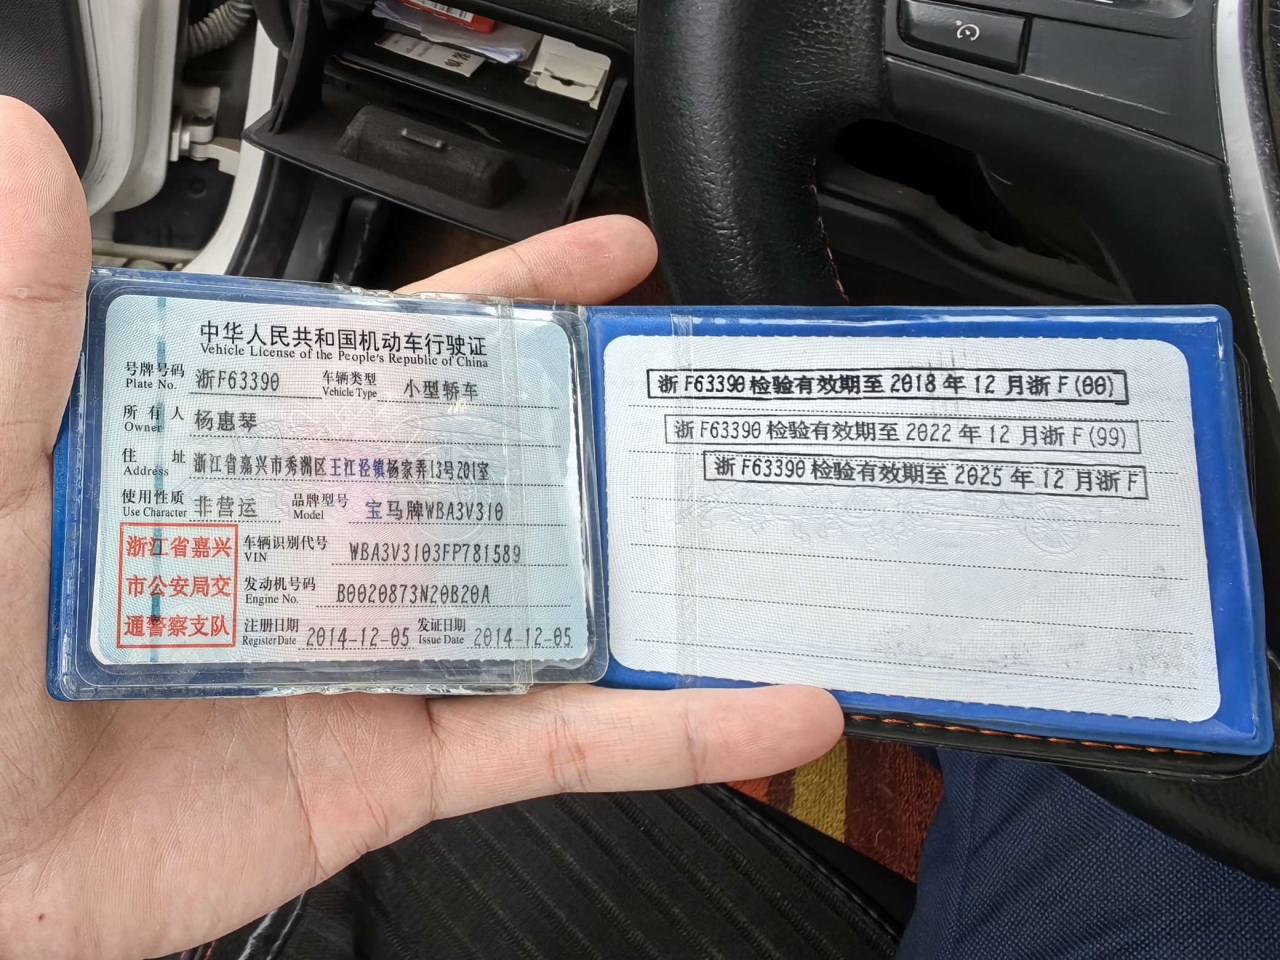 中华人民共和国机动车行驶证
Vehicle License of the People's Republic of China
号牌号码 浙F63390 车辆类型 小型轿车
Plate No. Vehicle Type
所有人 杨惠琴
Owner
住址 浙江省嘉兴市秀洲区王江泾镇杨家弄13号201室
Address
使用性质 非营运 品牌型号 宝马牌WBA3V310
Use Character Model
浙江省嘉兴
市公安局交
通警察支队
车辆识别代号 WBA3V3103FP781589
VIN
发动机号码 B0020873N20B20A
Engine No.
注册日期 2014-12-05 发证日期 2014-12-05
Register Date Issue Date
浙F63390检验有效期至2018年12月浙F(00)
浙F63390检验有效期至2022年12月浙F(99)
浙F63390检验有效期至2025年12月浙F